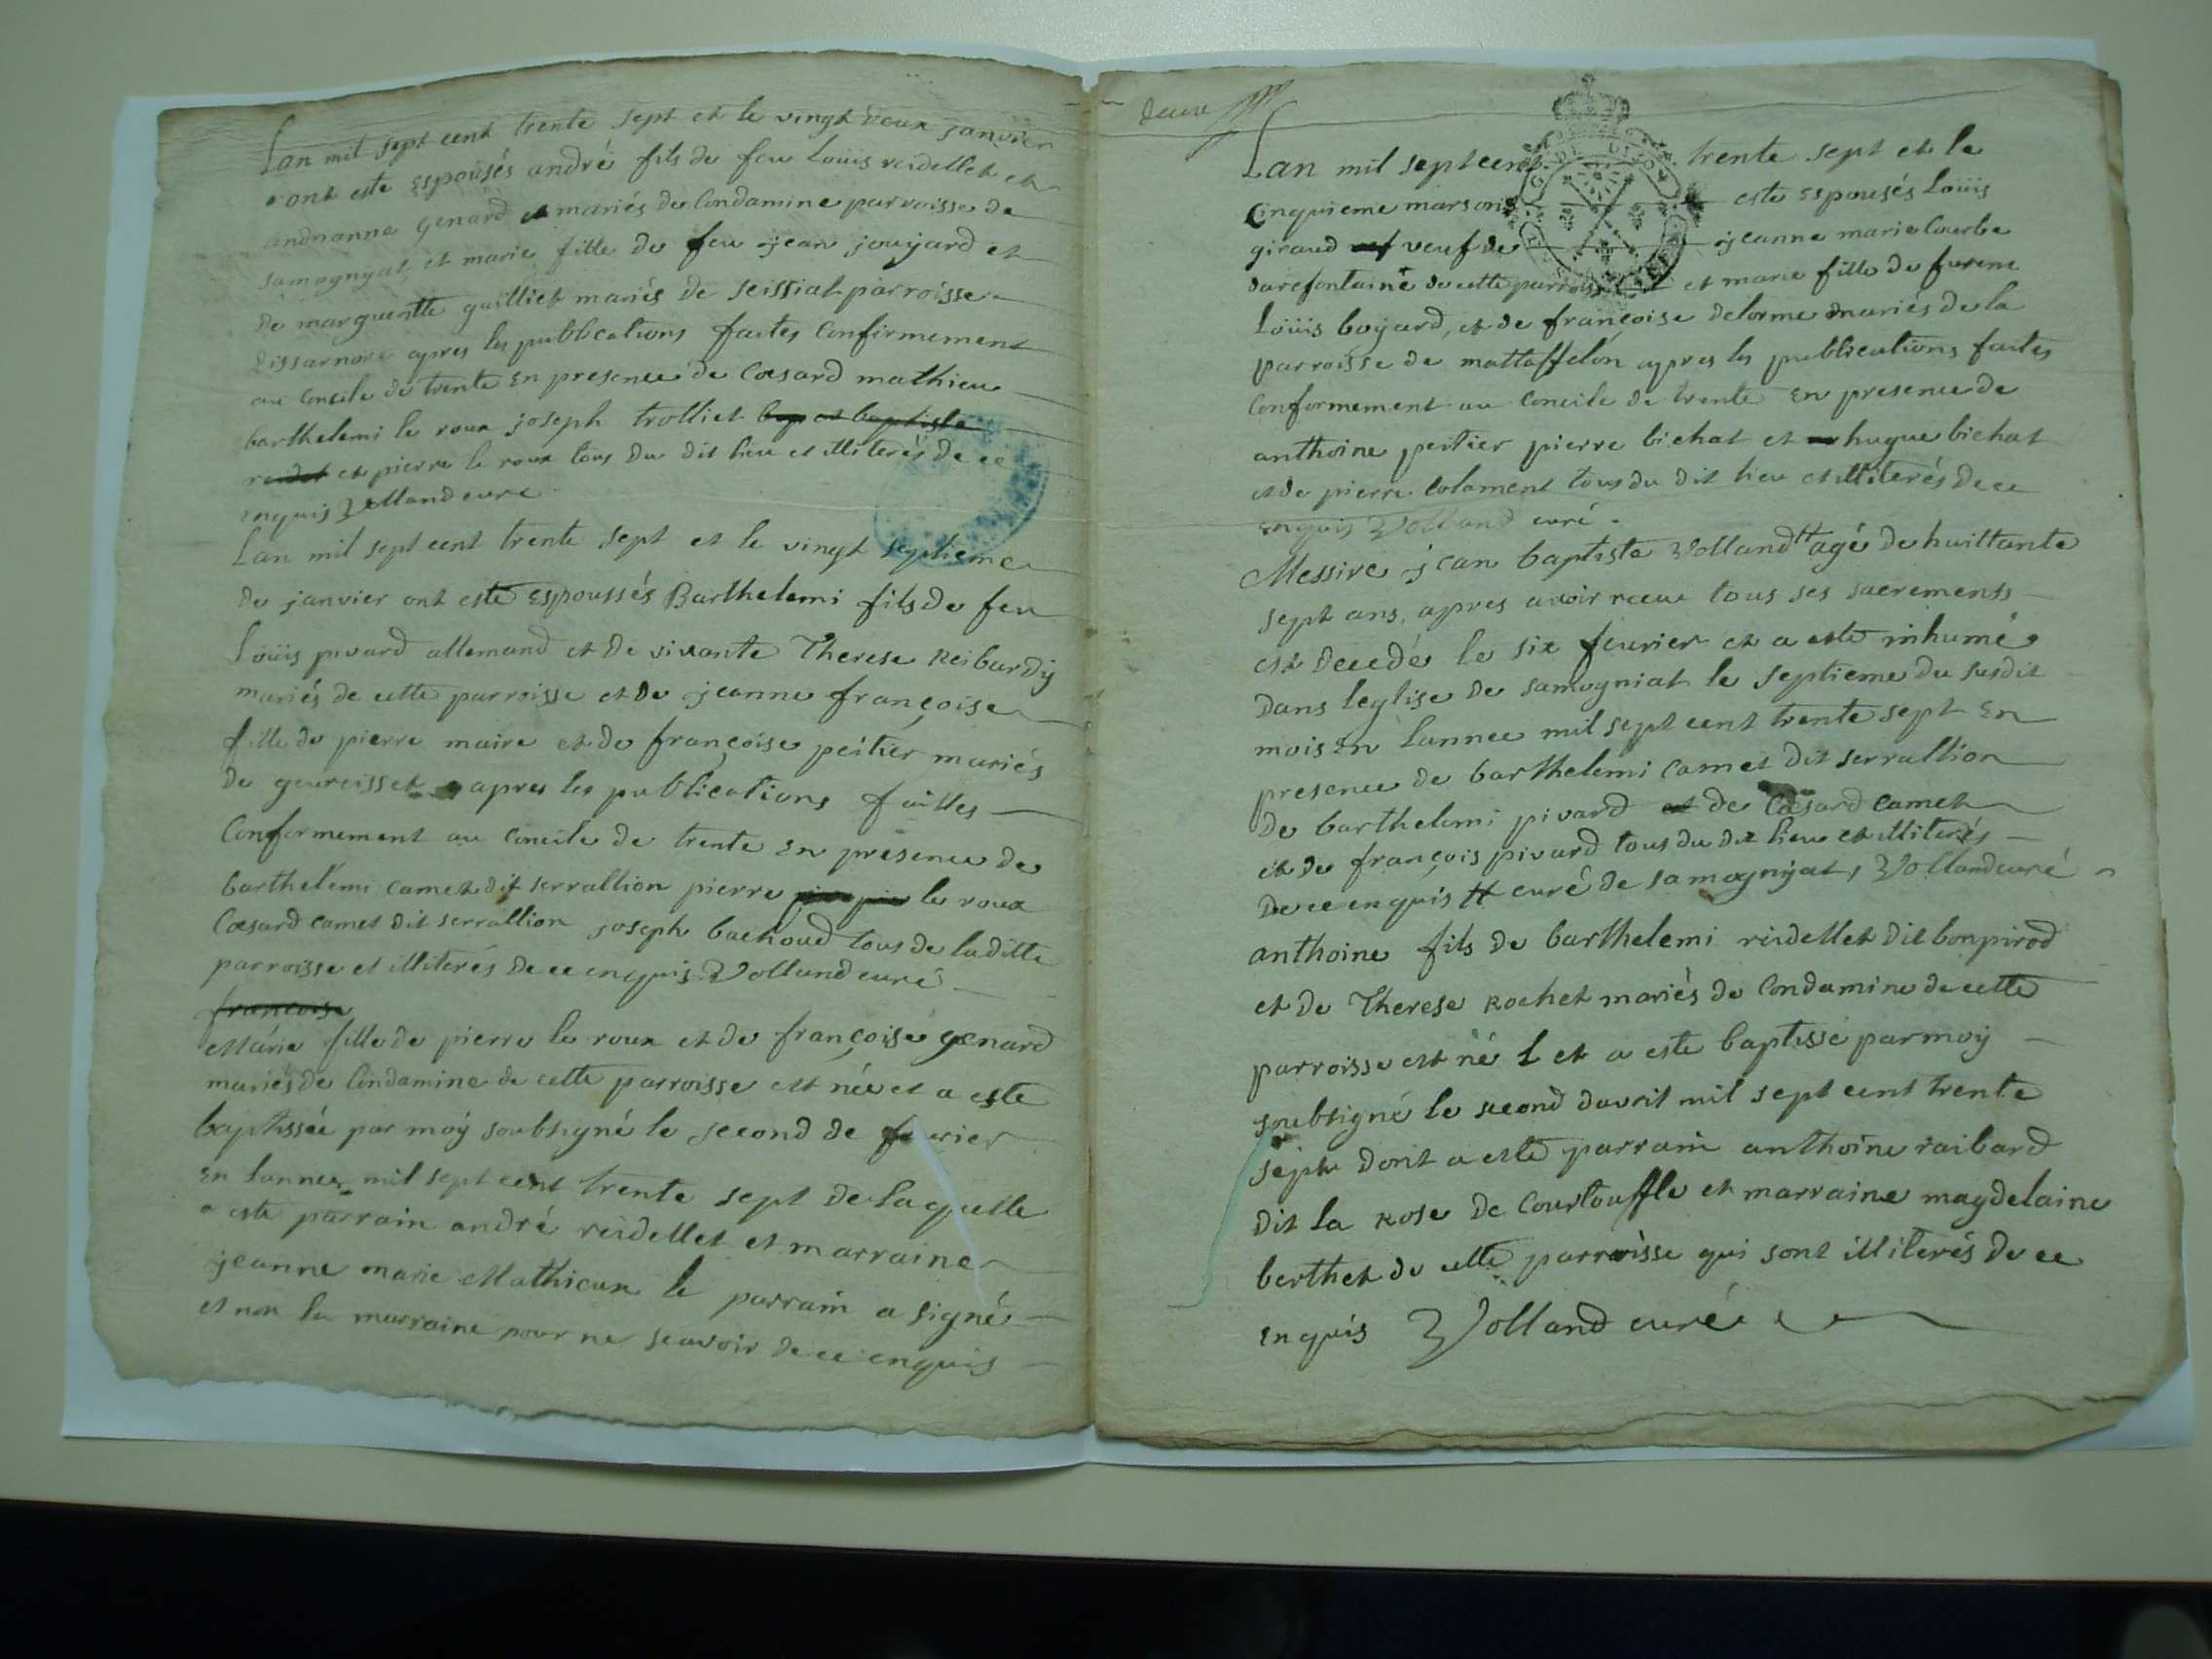 Lan mil sept cent trente sept et le vingt deux janvier
ont este espousés andré fils de feu Loüis reidellet et
andrianne genard mariés de Condamine parroisse de
samognyat, et marie fille de feu jean joüyard et
de margueritte guilliet mariés de seissiat parroisse
dissarnore apres les publications faites Confirmement
au Concile de trente en presence de Cæsard mathieu
barthelemi le roux joseph trolliet
et pierre le roux tous du dit lieu et illiterés de ce
enquis Volland curé
Lan mil sept cent trente sept et le vingt septieme
de janvier ont este espoussés Barthelemi fils de feu
Loüis pivard allemand et de vivante Therese Reibardÿ
mariés de cette parroisse et de jeanne françoise
fille de pierre maire et de françoise peitier mariés
de geureisset apres les publications faittes
Conformement au Concile de trente en presence de
barthelemi camet dit serrallion pierre le roux
Cæsard camet dit serrallion joseph bachoud tous de laditte
parroisse et illiterés de ce enquis Volland curé
françoise
Marie fille de pierre le roux et de françoise genard
mariés de Condamine de cette parroisse est née et a este
baptissée par moÿ soubsigné le second de feurier
en lannee mil sept cent trente sept de laquelle
a este parrain andré reidellet et marraine
jeanne marie Mathieux le parrain a signé
et non la marraine pour ne scavoir de ce enquis
deux
Lan mil sept cent trente sept et le
Cinquieme mars ont este espousés Loüis
giraud veuf de jeanne marie Courbe
darefontaine de cette parroisse et marie fille de
Loüis boÿard, et de françoise delorme mariés de la
parroisse de mattaffelon apres les publications faites
Conformement au Concile de trente en presence de
anthoine peitier pierre bichat et hugue bichat
et de pierre Colament tous du dit lieu et illiterés de ce
enquis Volland curé.
Messire jean baptiste Volland # agé de huittante
sept ans, apres avoir receu tous ses sacrements
est decedé le six feurier et a este inhumé
dans leglise de samogniat le septieme du susdit
mois en lannee mil sept cent trente sept en
presence de barthelemi camet dit serrallion
de barthelemi pivard de Cæsard camet
et de françois pivard tous du dit lieu et illiterés
de ce enquis # curé de samognÿat, Volland curé
anthoine fils de barthelemi reidellet dit bonpirod
et de Therese Rochet mariés de Condamine de cette
parroisse est né l et a este baptissé par moÿ
soubsigné le second davril mil sept cent trente
sept dont a este parrain anthoine raibard
dit la Rose de Courtouffle et marraine magdelaine
berthet de cette parroisse qui sont illiterés de ce
enquis Volland curé